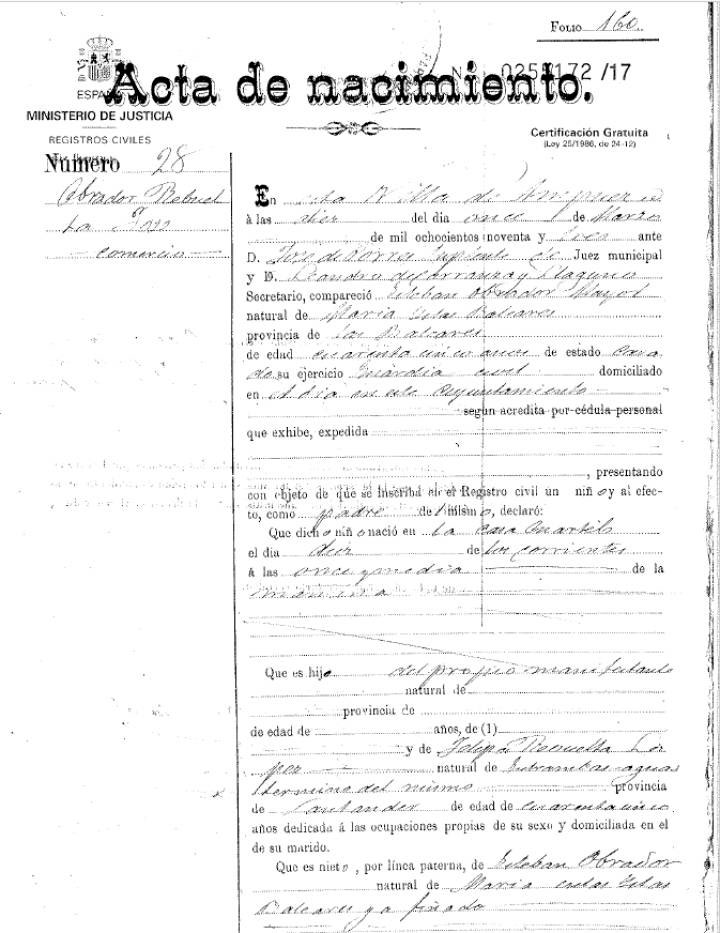 FOLIO 160.
Acta de nacimiento.
ESPAÑA
0255172 /17
MINISTERIO DE JUSTICIA
REGISTROS CIVILES
Certificación Gratuita
(Ley 25/1986, de 24-12)
Número 28
Obrador Revuel
ta
comercio
En esta Villa de Ampuero
á las diez del dia once de Marzo
de mil ochocientos noventa y tres ante
D. José de Torre Suplente de Juez municipal
y D. Leandro de Carranza y Llaguno
Secretario, compareció Esteban Obrador Mayol
natural de Maria Islas Baleares
provincia de las Baleares
de edad cuarenta un años de estado casa
do su ejercicio Guardia civil domiciliado
en el dia en este Ayuntamiento
según acredita por cédula personal
que exhibe, expedida
, presentando
con objeto de que se inscriba en el Registro civil un niño y al efec-
to, como padre del mismo, declaró:
Que dicho niño nació en la casa Cuartel
el dia diez de los corrientes
á las once y media de la
mañana
Que es hijo del propio manifestante
natural de
provincia de
de edad de años, de (1)
y de Felipa Revuelta Lo
pez natural de Entrambas aguas
termino del mismo provincia
de Santander de edad de cuarenta
años dedicada á las ocupaciones propias de su sexo y domiciliada en el
de su marido.
Que es nieto, por línea paterna, de Esteban Obrador
natural de Maria en las Islas
Baleares ya finado